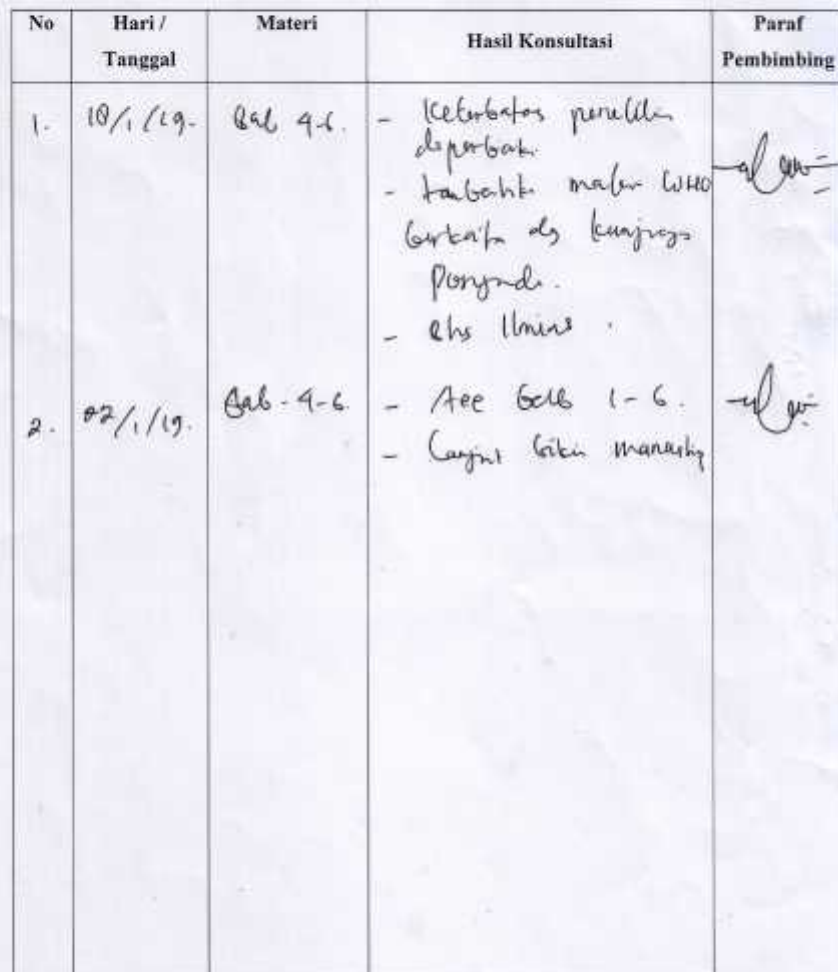 No Hari / Tanggal Materi Hasil Konsultasi Paraf Pembimbing
1. 10/1/19. Bab 4-6. - Keterbatas penelitin
diperbaik
- tambahk materi WHO
berkaita dg kunjunga
Posyandu.
-
2. 02/1/19. Bab-4-6. - Acc Bab 1-6.
- Lanjut bikin manuskrip